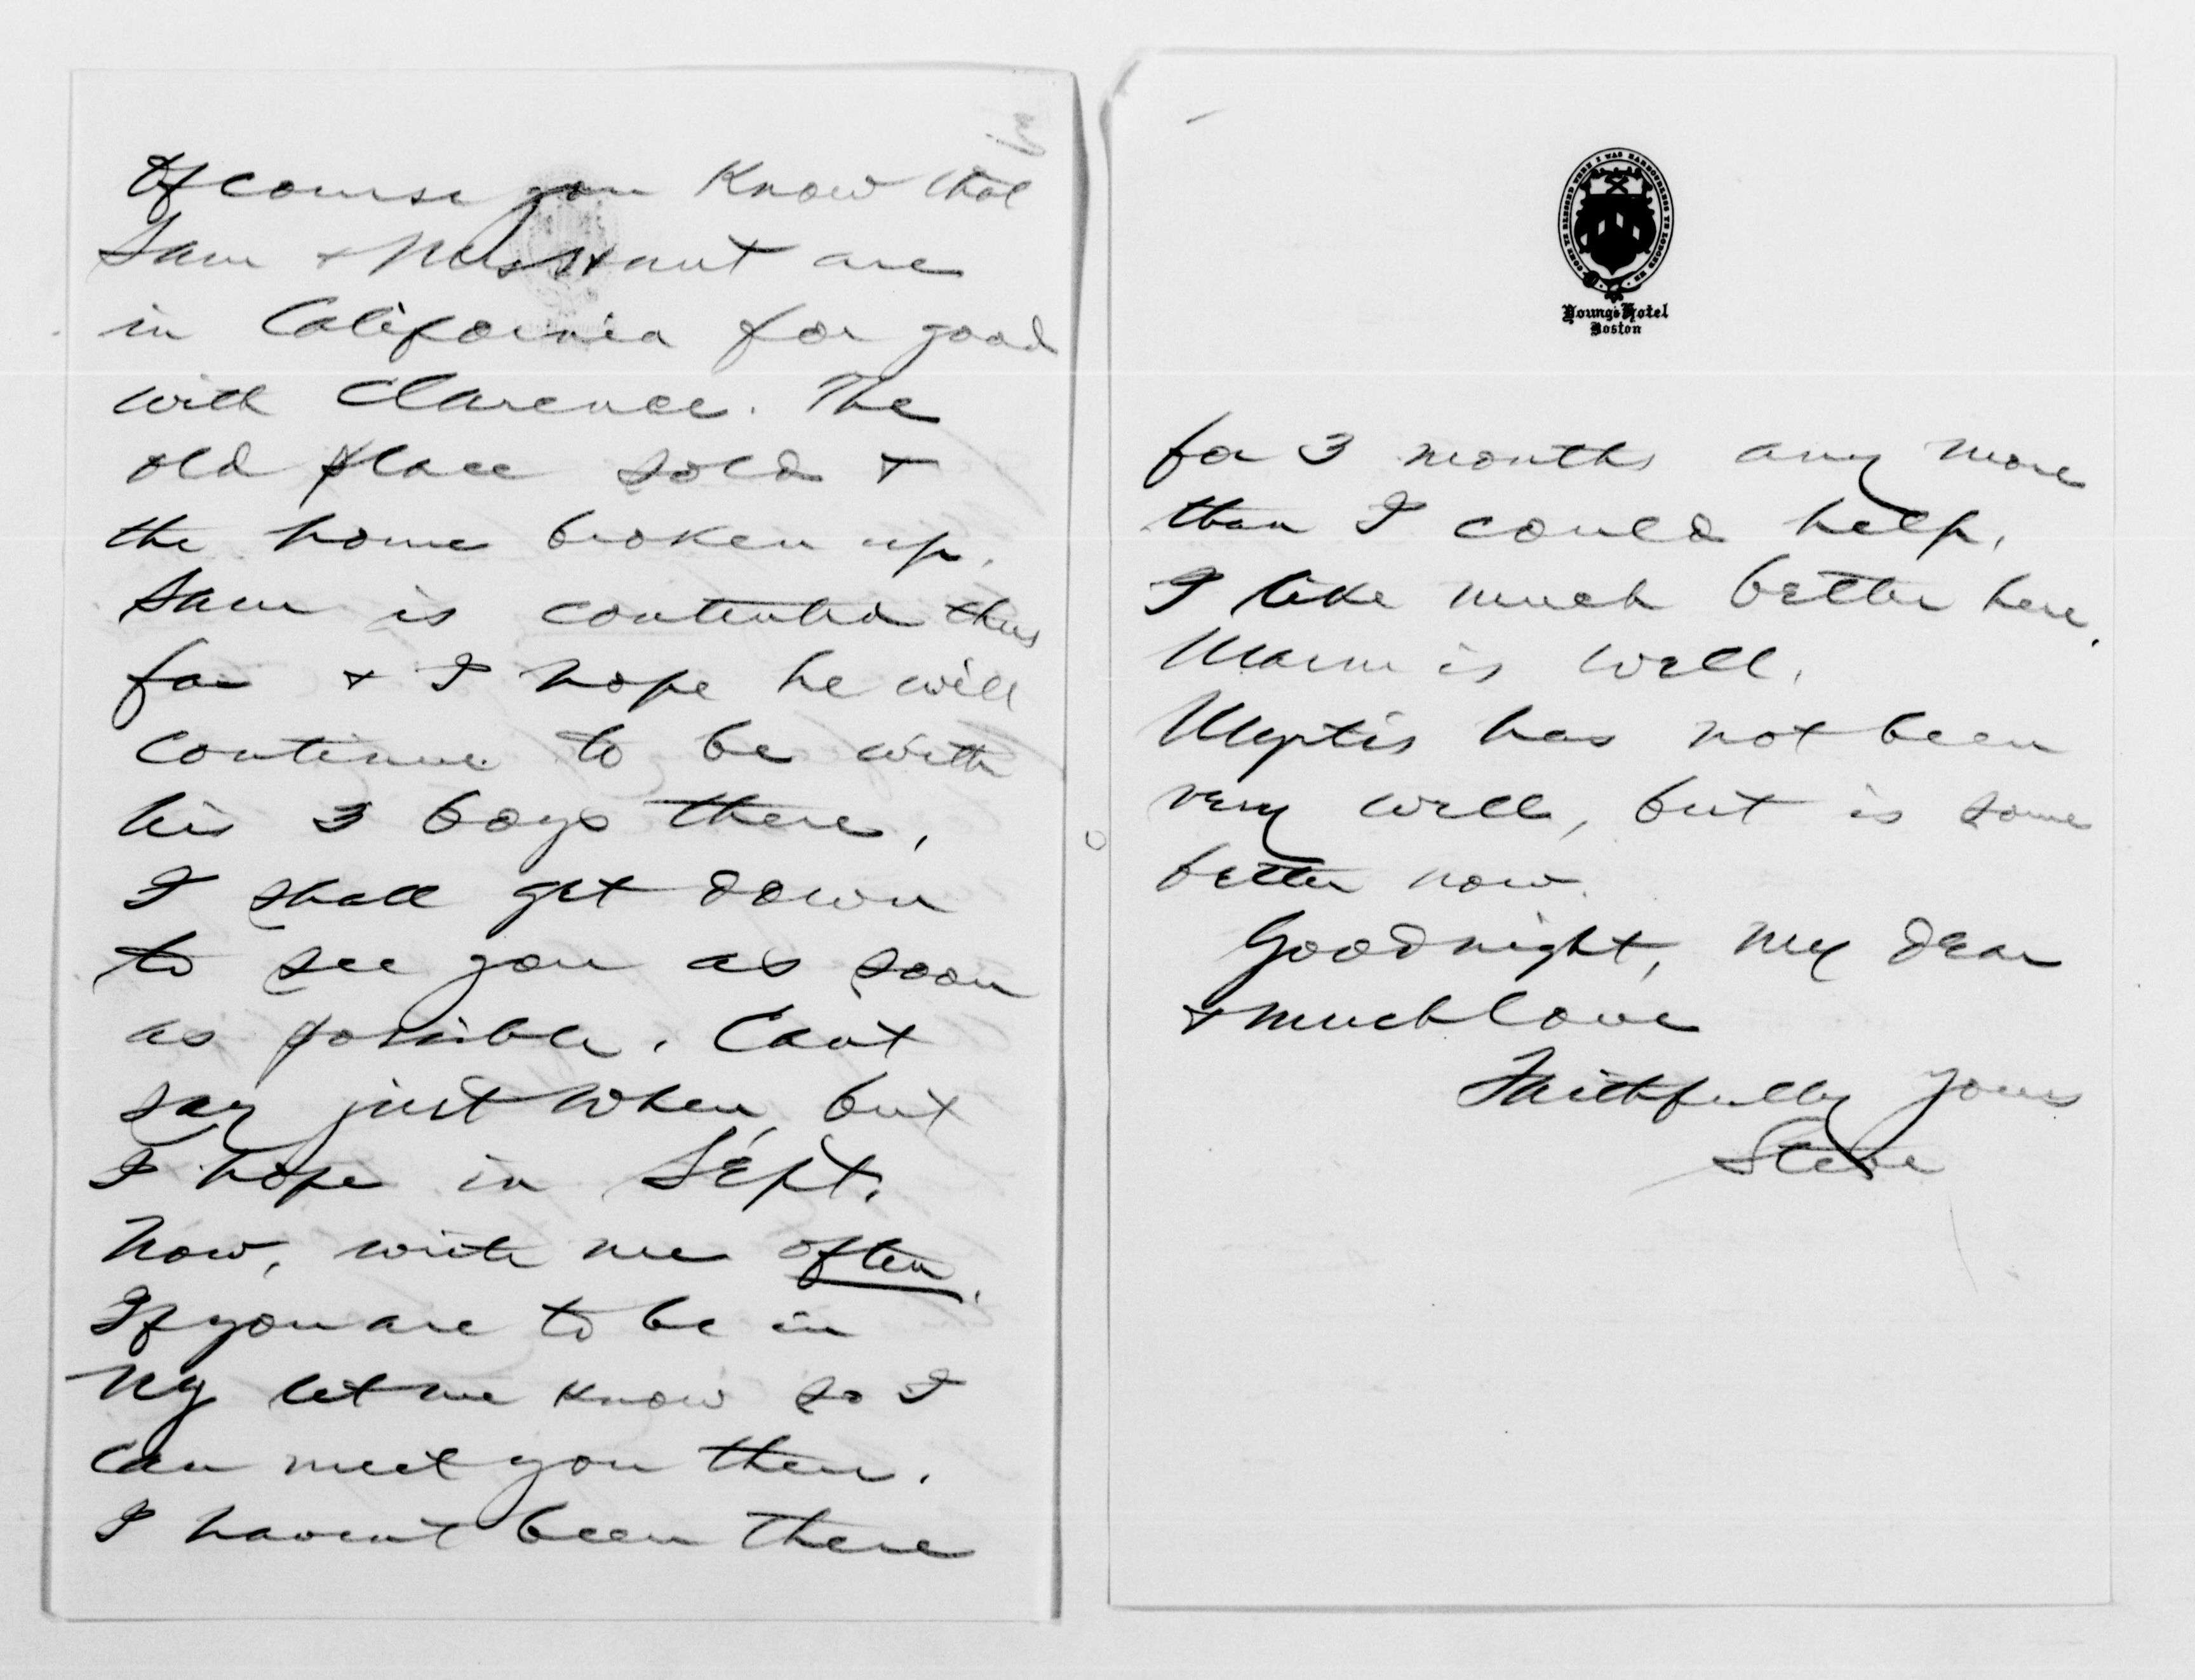 3
Of course you know that
Sam & Mrs Hunt are
in California for good
with Clarence. The
old place sold &
the home broken up.
Sam is contented thus
far & I hope he will
continue to be with
his 3 boys there.
I shall get down
to see you as soon
as possible. Cant
say just when, but
I hope in Sept.
Now, write me often.
If you are to be in
NY let me know so I
can meet you there.
I haven't been there
Young's Hotel
Boston
for 3 months any more
than I could help.
I like much better here.
Marm is well.
has not been
very well, but is some
better now.
Goodnight, my dear
& much love
Faithfully yours
Steve